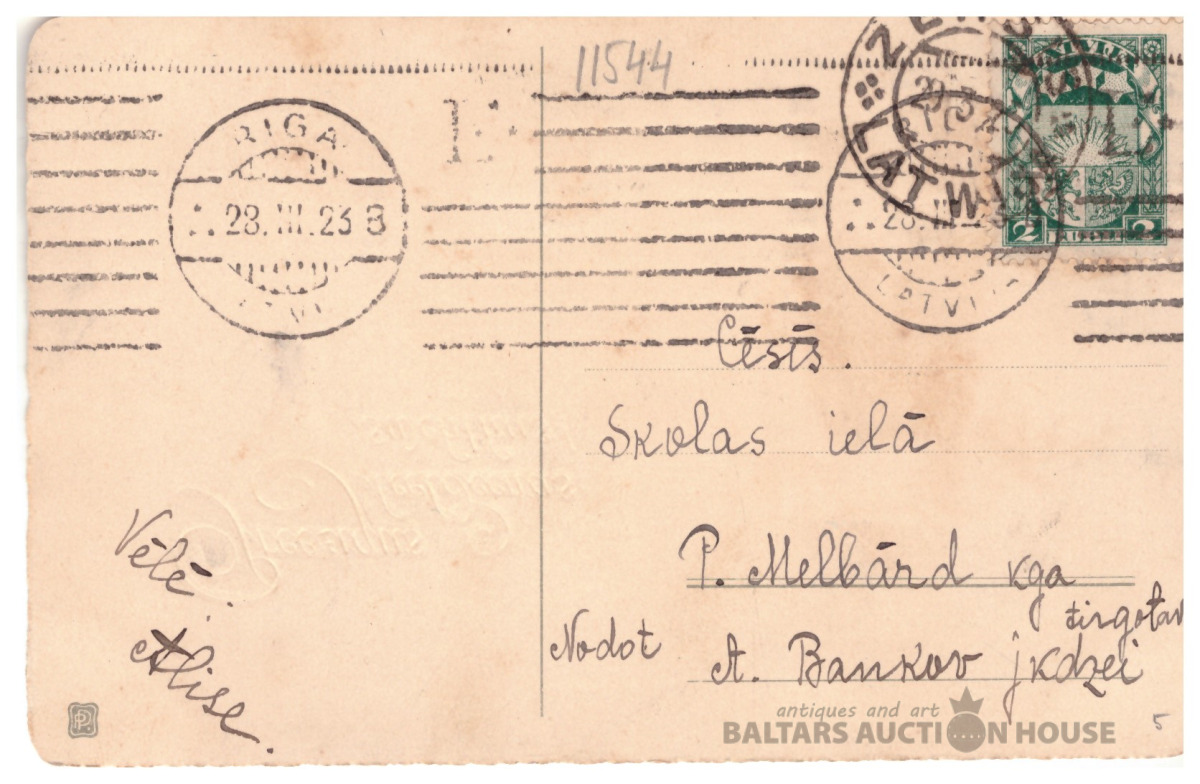 11544
RIGA
28.III.23 B
LATWIA
28.III.23
LATVIJA
2 2
Cēsīs.
Skolas ielā
P. Melbārd kga
tirgotav
Nodot A. Bankov jkdzei
Vēlē.
Alise.
antiques and art
BALTARS AUCTION HOUSE
5